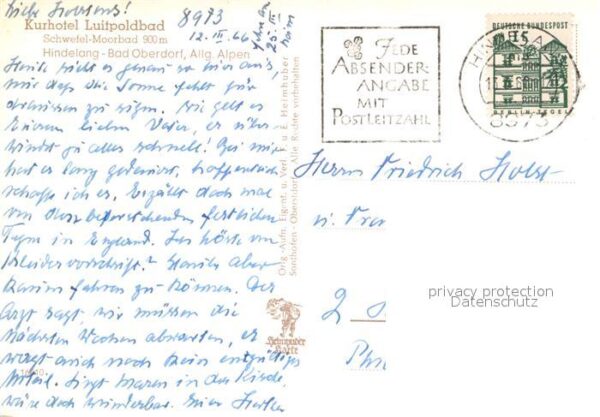 Liebe Horsens!
8973
12.III.66
Kurhotel Luitpoldbad
Schwefel-Moorbad 900 m
Hindelang - Bad Oberdorf, Allg. Alpen
Heute sieht es genau so hier aus,
nur daß die Sonne fehlt für
draussen zu sitzen. Wie geht es
Eurem lieben Vater, er über-
windet ja alles schnell! Bei mir
hat es lang gedauert, hoffentlich
schaffe ich es. Erzählt doch mal
von dem bevorstehenden festlichen
Tage in England. Ich hörte von
Kleidervorschrift? Glaube aber
kaum fahren zu können. Der
Arzt sagt, wir müssen die
nächsten Wochen abwarten, er
wagt auch noch kein entgültiges
Urteil. Singt Maren in der Kirche,
wäre doch wunderbar. Eure
Orig.-Aufn. Eigent. u. Verl. F. u. E. Heimhuber
Sonthofen - Oberstdorf Alle Rechte vorbehalten
Heimhuber
Karte
JEDE
ABSENDER-
ANGABE
MIT
POSTLEITZAHL
DEUTSCHE BUNDESPOST
15
8973
Herrn Friedrich Holst
u. Frau
2
privacy protection
Datenschutz